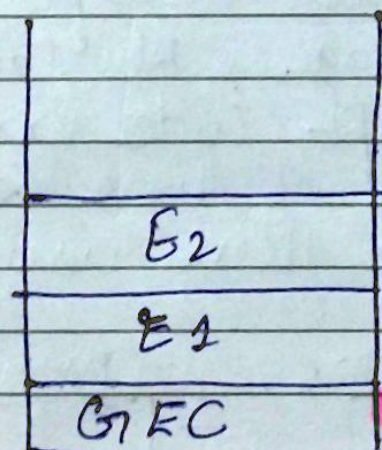 E2
E1
GEC